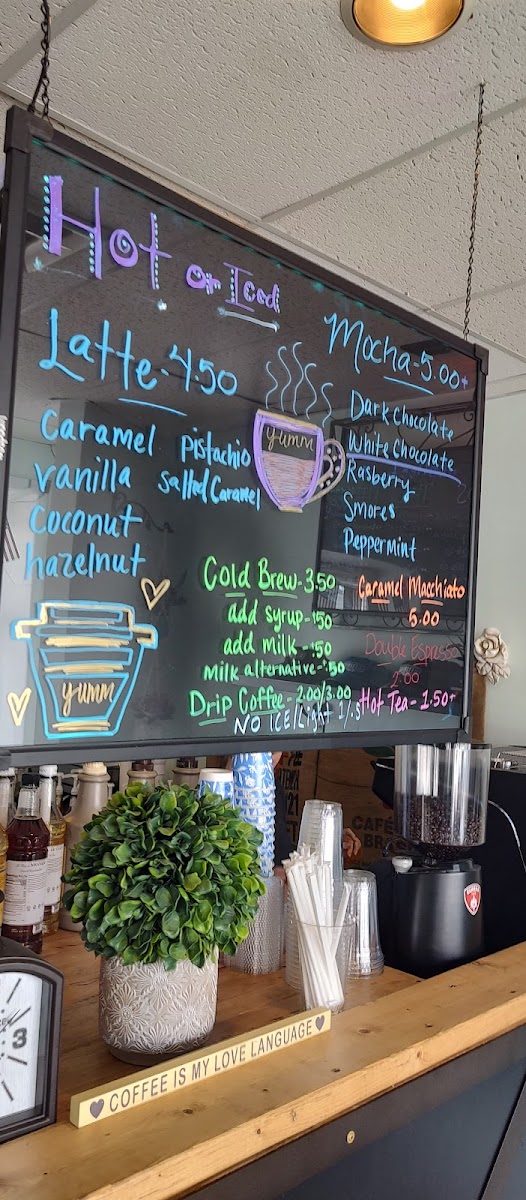 Hot or Iced
Latte-4.50
Caramel
vanilla
Coconut
hazelnut
pistachio
salted Caramel
yumm
Mocha-5.00+
Dark Chocolate
White Chocolate
Rasberry
Smores
Peppermint
Cold Brew-3.50
add syrup-.50
add milk-.50
milk alternative-.50
Drip Coffee-2.00/3.00
NO ICE/Light
Caramel Macchiato
6.00
Double Espresso
2.00
Hot Tea-1.50+
yumm
CAFÉ
BRA
3
COFFEE IS MY LOVE LANGUAGE